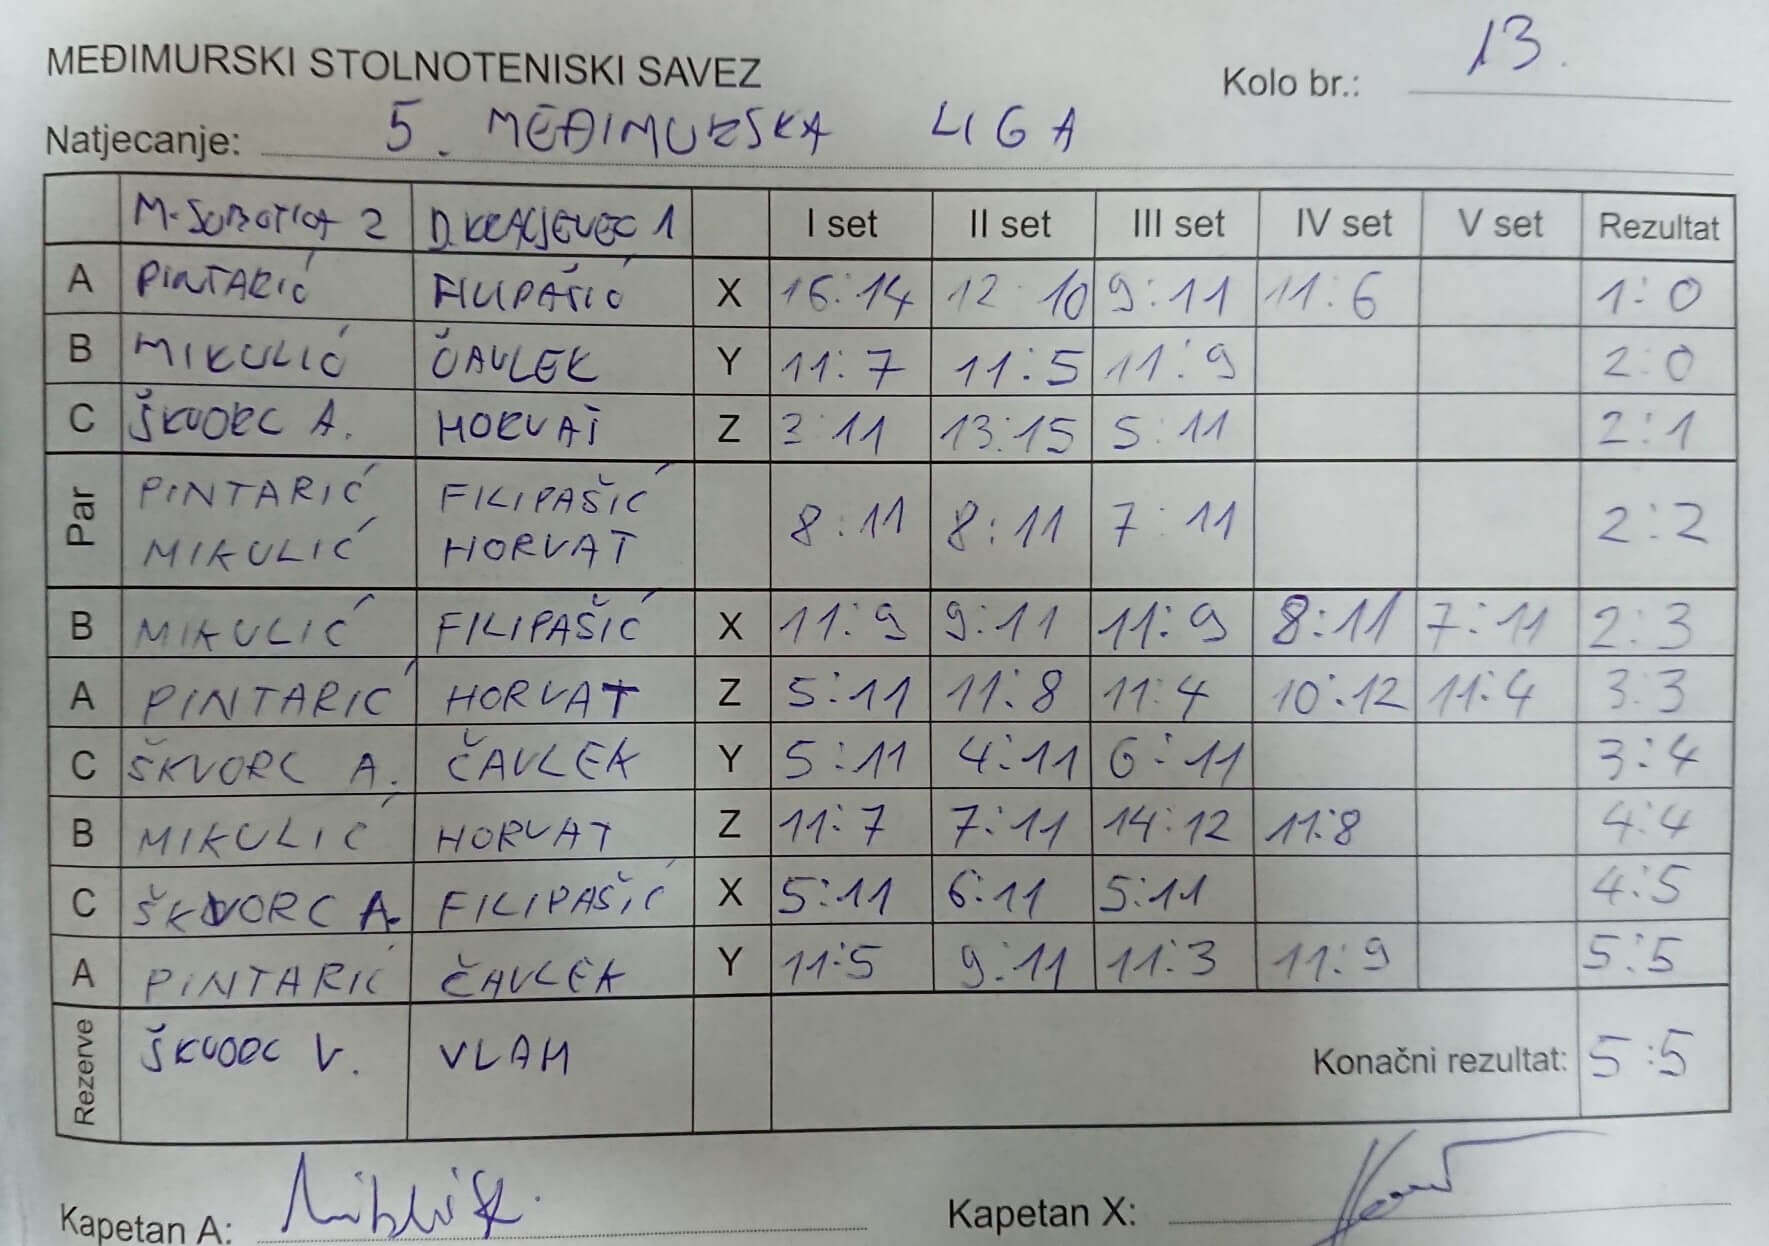 MEĐIMURSKI STOLNOTENISKI SAVEZ
Kolo br.: 13.
Natjecanje: 5. MEĐIMURSKA LIGA
M. SUBOTICA 2 D. KRALJEVEC 1 I set II set III set IV set V set Rezultat
A PINTARIĆ FILIPAŠIĆ X 16:14 12:10 9:11 11:6 1:0
B MIKULIĆ ČAVLEK Y 11:7 11:5 11:9 2:0
C ŠKVORC A. HORVAT Z 3:11 13:15 5:11 2:1
Par PINTARIĆ MIKULIĆ FILIPAŠIĆ HORVAT 8:11 8:11 7:11 2:2
B MIKULIĆ FILIPAŠIĆ X 11:9 9:11 11:9 8:11 7:11 2:3
A PINTARIĆ HORVAT Z 5:11 11:8 11:4 10:12 11:4 3:3
C ŠKVORC A. ČAVLEK Y 5:11 4:11 6:11 3:4
B MIKULIĆ HORVAT Z 11:7 7:11 14:12 11:8 4:4
C ŠKVORC A. FILIPAŠIĆ X 5:11 6:11 5:11 4:5
A PINTARIĆ ČAVLEK Y 11:5 9:11 11:3 11:9 5:5
Rezerve ŠKVORC V. VLAH Konačni rezultat: 5:5
Kapetan A: Kapetan X: